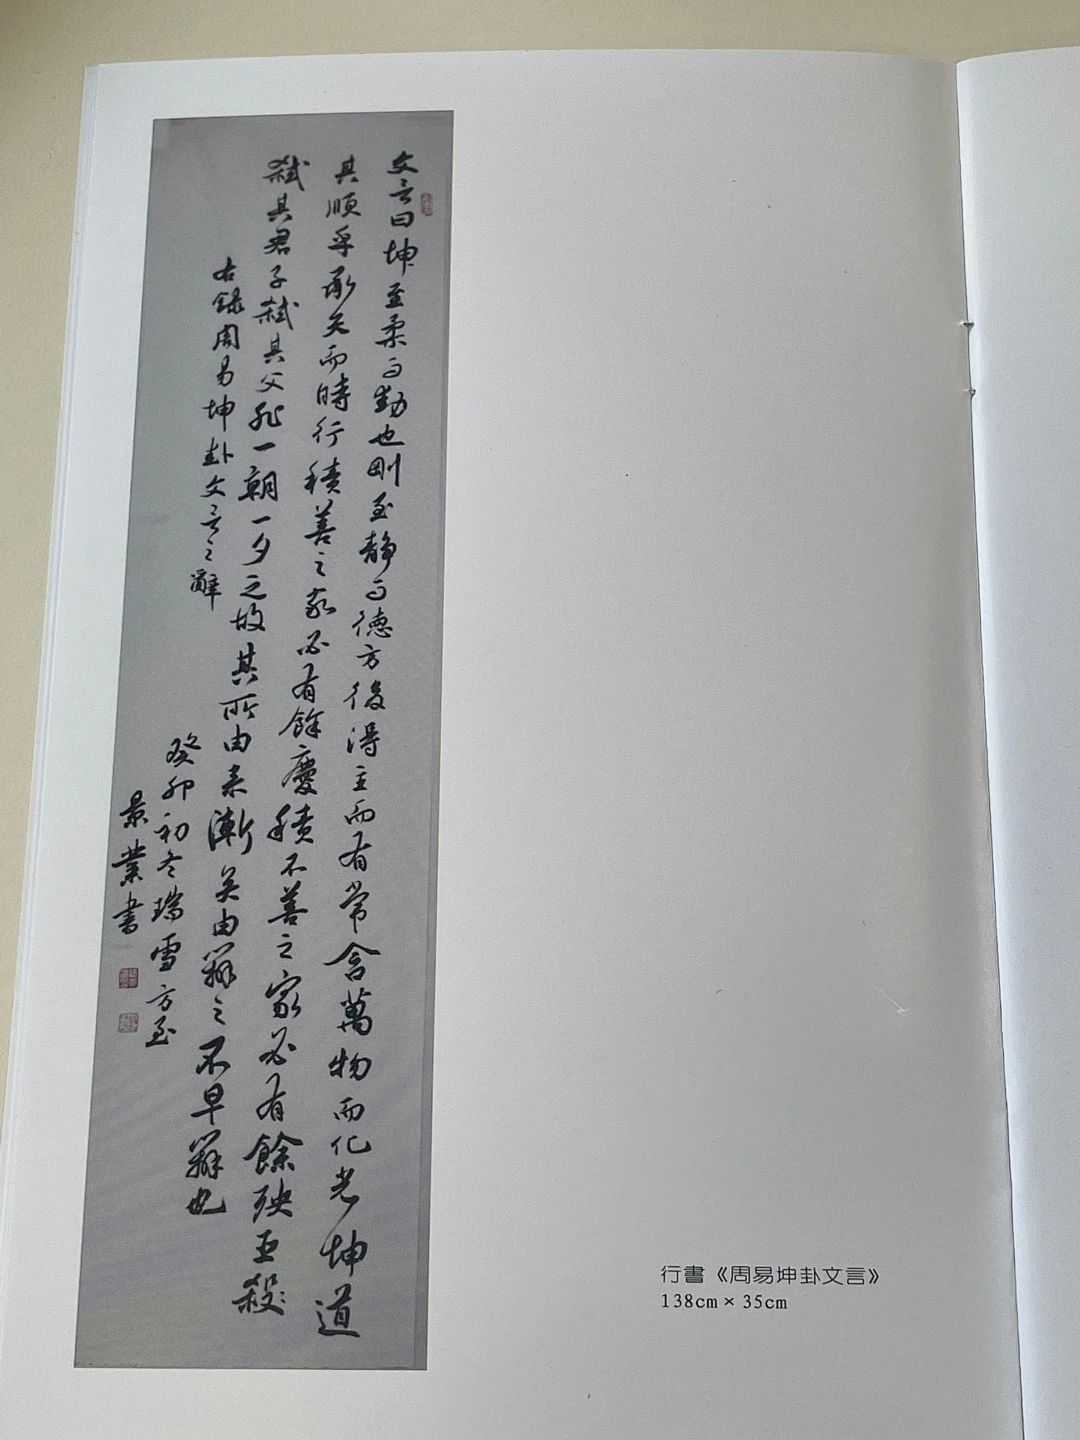 文言曰坤至柔而動也剛至靜而德方後得主而有常含萬物而化光坤道
其順乎承天而時行積善之家必有餘慶積不善之家必有餘殃臣殺
弑其君子弑其父非一朝一夕之故其所由来漸矣由辯之不早辯也
右錄周易坤卦文言之辭
癸卯初冬瑞雪方至
景業書
行書《周易坤卦文言》
138cm × 35cm